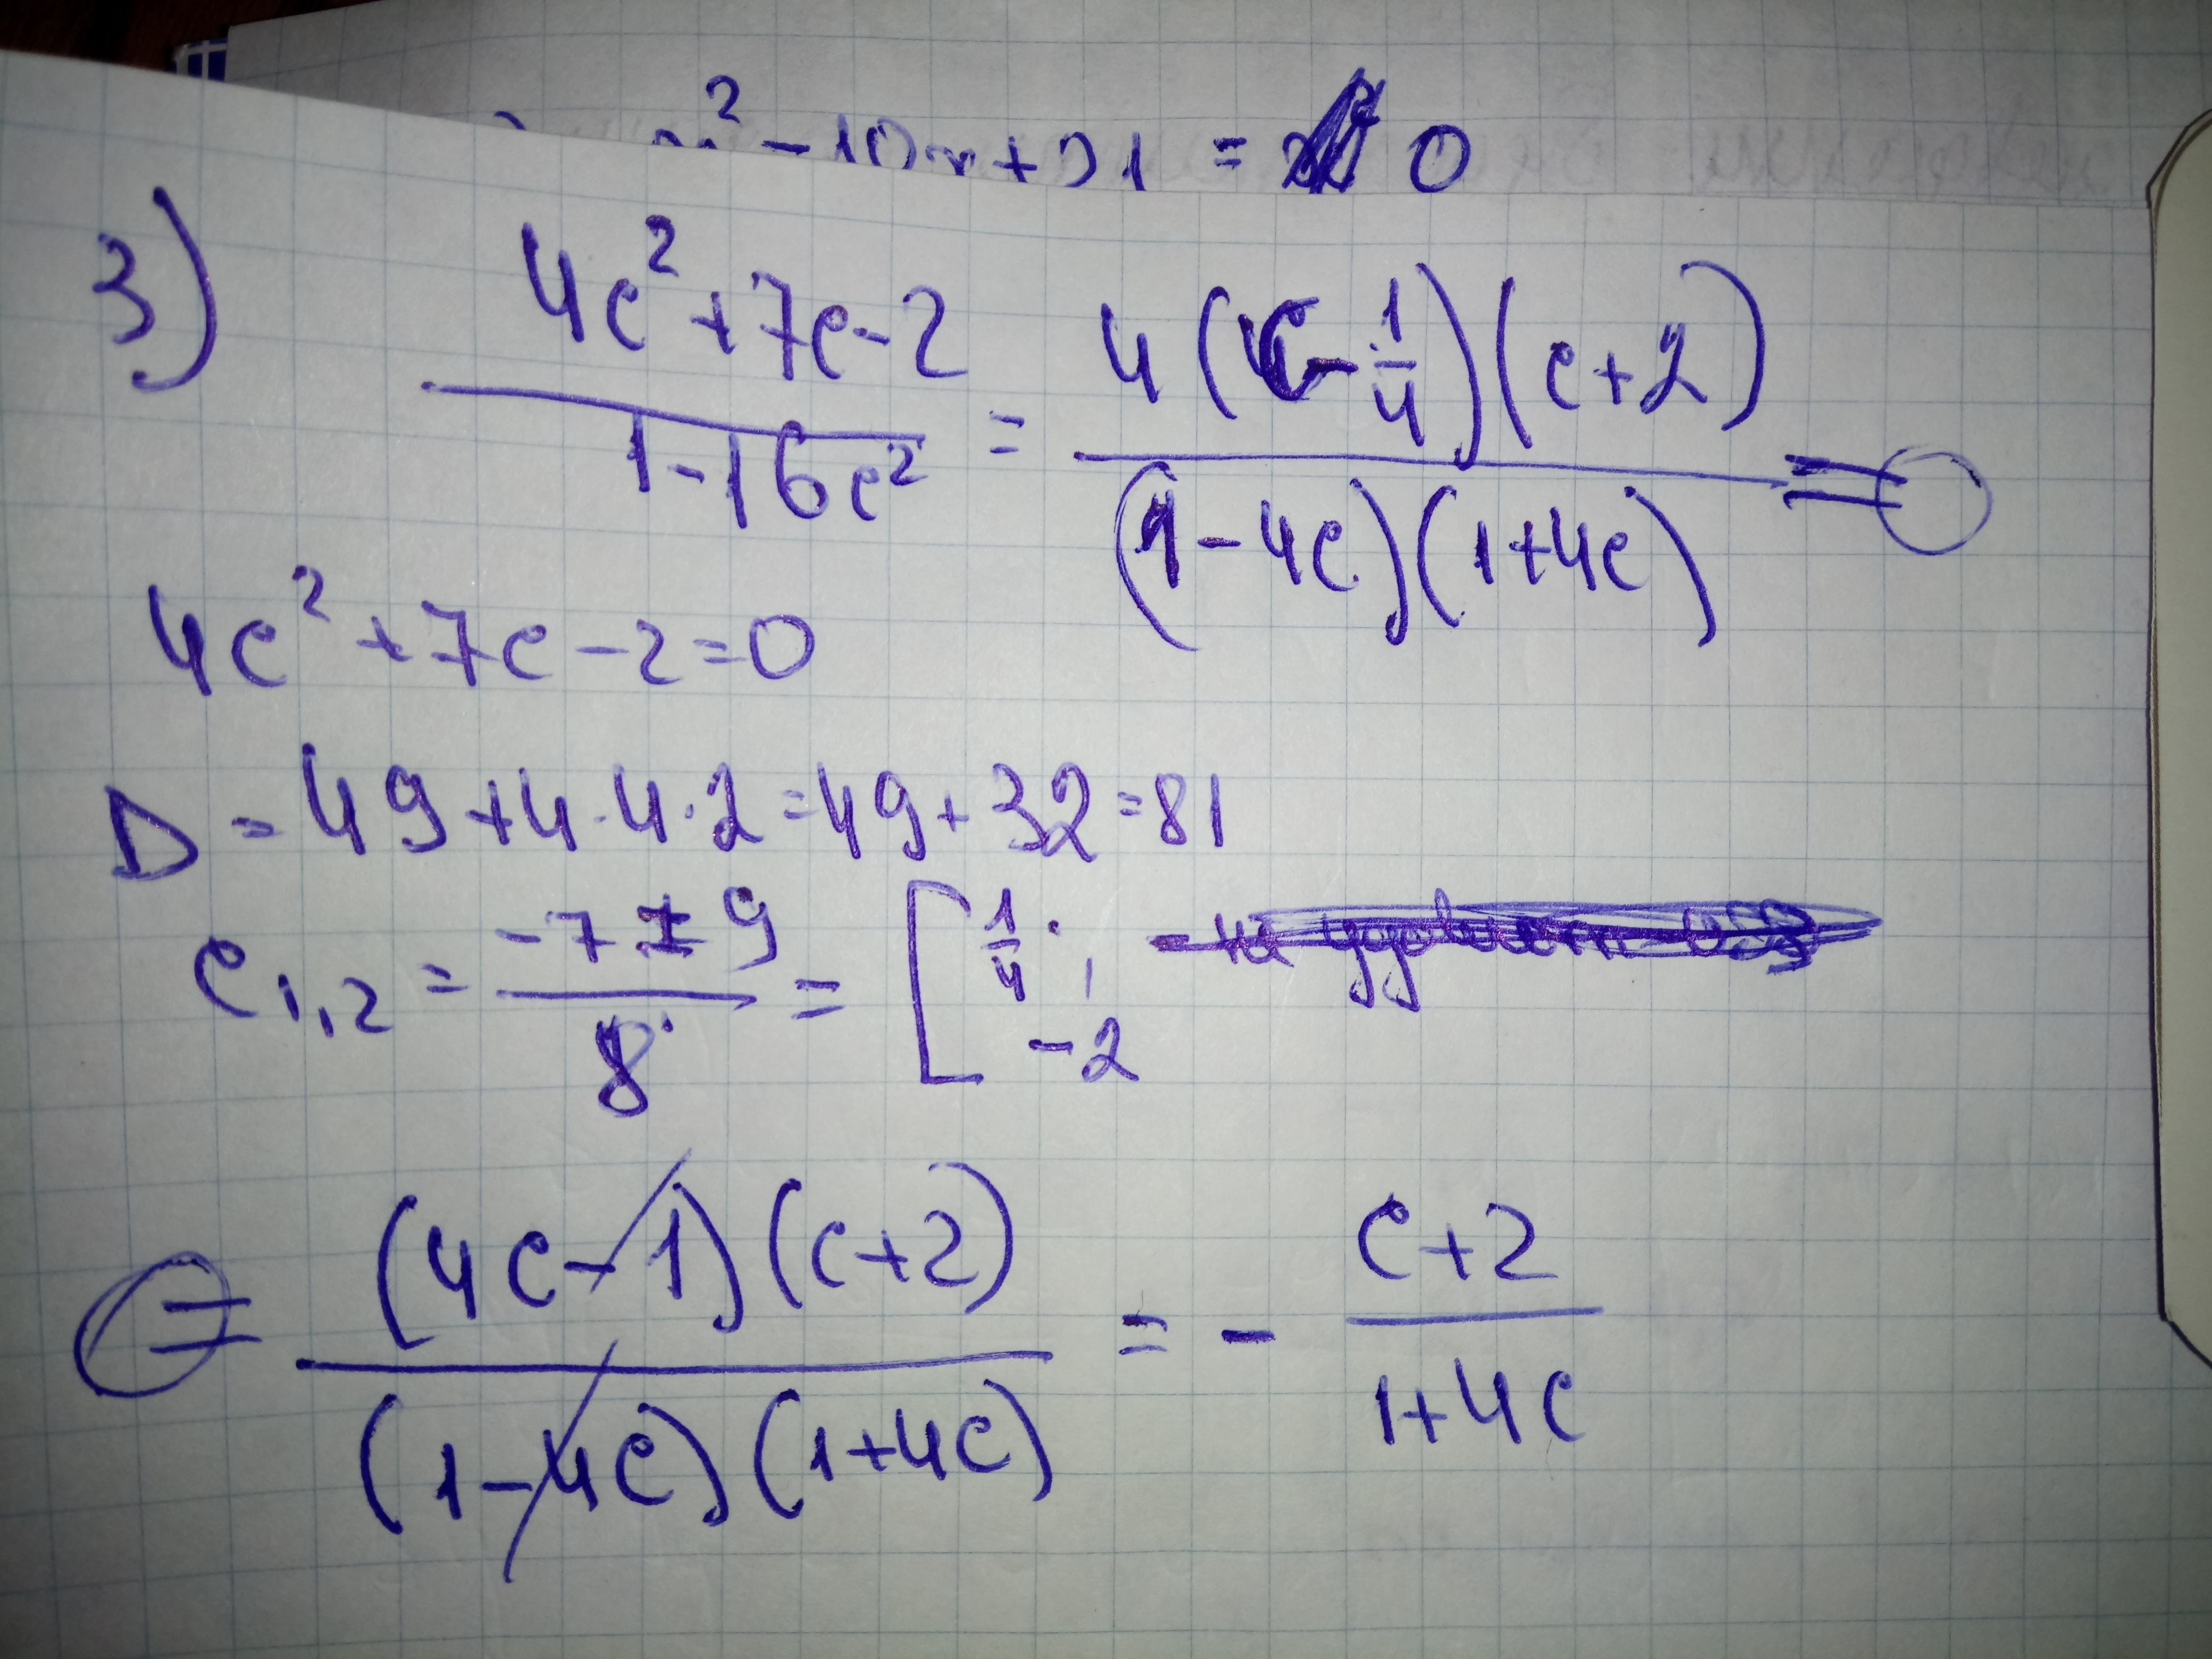 ² - 10x + 21 = 0
3) \frac{4c²+7c-2}{1-16c²} = \frac{4(c-\frac{1}{4})(c+2)}{(1-4c)(1+4c)} =
4c²+7c-2=0
D = 49+4·4·2=49+32=81
c₁,₂ = \frac{-7±9}{8} = [ \frac{1}{4}; -2
= \frac{(4c-1)(c+2)}{(1-4c)(1+4c)} = - \frac{c+2}{1+4c}